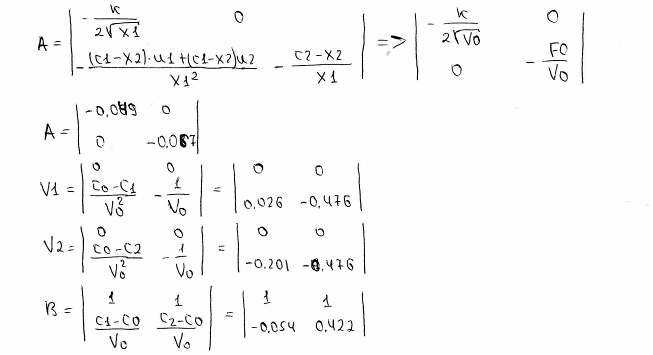 A = | - k / 2√x1    0 | => | - k / 2√V0    0 |
| - (c1-x2)·u1+(c1-x2)u2 / x1²    - c2-x2 / x1 |    | 0    - F0 / V0 |
A = | -0,049    0 |
| 0    -0,067 |
V1 = | 0    0 | = | 0    0 |
| c0-c1 / V0²    - 1 / V0 |    | 0,026    -0,476 |
V2 = | 0    0 | = | 0    0 |
| c0-c2 / V0²    - 1 / V0 |    | -0,201    -0,476 |
B = | 1    1 | = | 1    1 |
| c1-c0 / V0    c2-c0 / V0 |    | -0,054    0,422 |